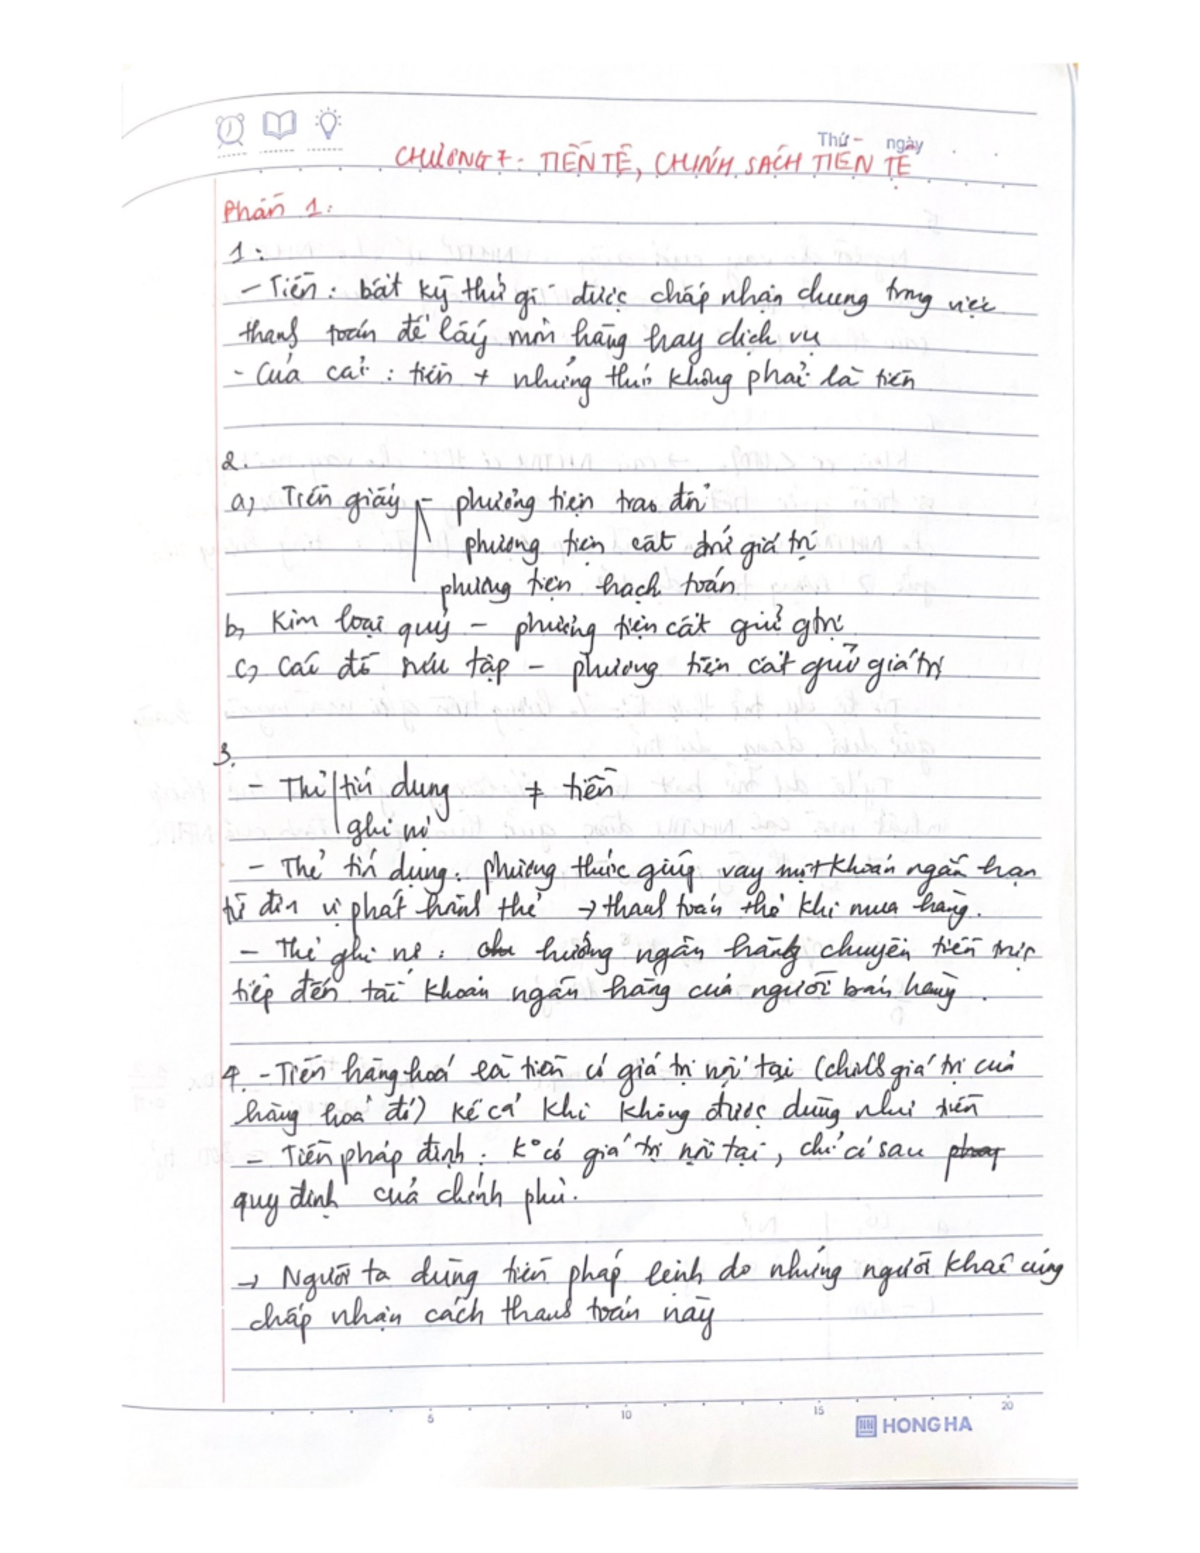 Thứ - ngày
CHƯƠNG 7: TIỀN TỆ, CHÍNH SÁCH TIỀN TỆ
Phần 1:
1:
- Tiền: bất kỳ thứ gì được chấp nhận chung trong việc
thanh toán để lấy món hàng hay dịch vụ
- Của cải: tiền + những thứ không phải là tiền
2.
a, Tiền giấy - phương tiện trao đổi
phương tiện cất trữ giá trị
phương tiện hạch toán
b, Kim loại quý - phương tiện cất giữ gtrị
c, Các đồ sưu tập - phương tiện cất giữ giá trị
3.
- Thẻ tín dụng ≠ tiền
ghi nợ
- Thẻ tín dụng: phương thức giúp vay một khoản ngắn hạn
từ đơn vị phát hành thẻ → thanh toán thẻ khi mua hàng.
- Thẻ ghi nợ: hướng ngân hàng chuyển tiền trực
tiếp đến tài khoản ngân hàng của người bán hàng.
4. - Tiền hàng hoá là tiền có giá trị nội tại (chính giá trị của
hàng hoá đó) kể cả khi không được dùng như tiền
- Tiền pháp định: k° có giá trị nội tại, chỉ có sau
quy định của chính phủ.
→ Người ta dùng tiền pháp lệnh do những người khác cũng
chấp nhận cách thanh toán này
5 10 15 20
HONG HA